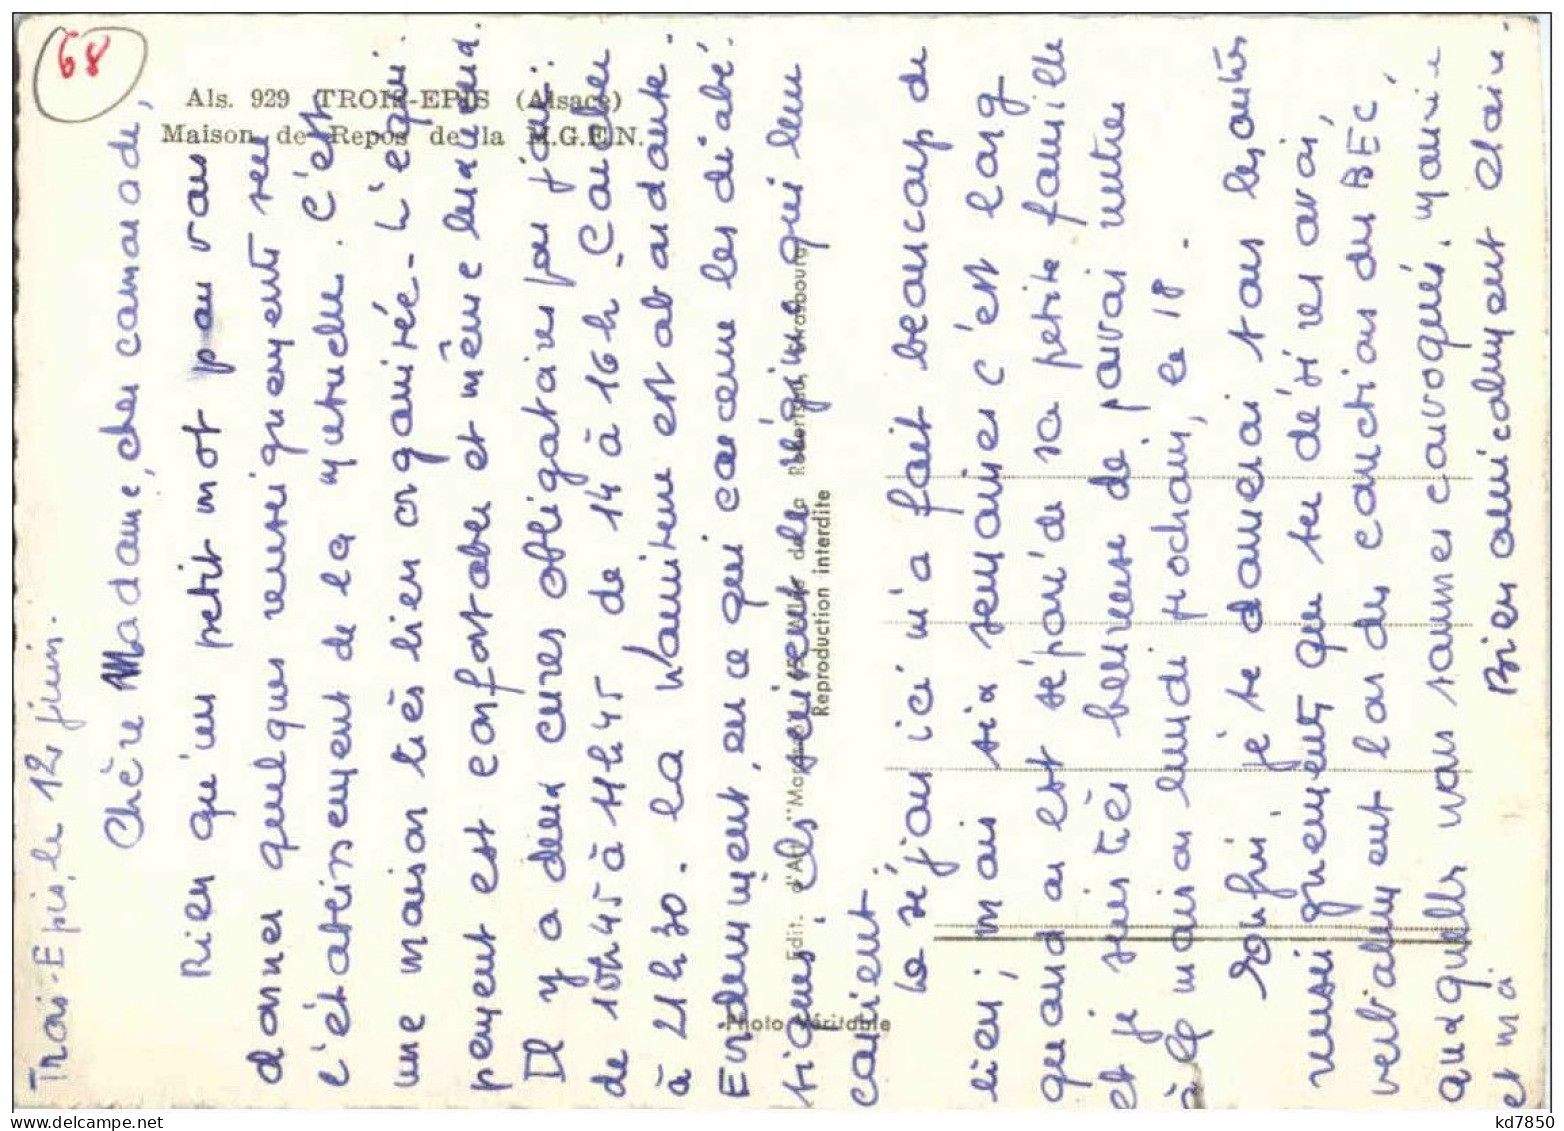 68
Als. 929 TROIS-EPIS (Alsace)
Maison de Repos de la M.G.E.N.
Trois-Epis, le 12 juin.
Chère Madame, cher camarade,
Rien qu'un petit mot pour vous
donner quelques renseignements sur
l'établissement de la mutuelle. C'est
une maison très bien organisée - L'équi-
pement est confortable et même luxueux.
Il y a deux cures obligatoires par jour:
de 10h45 à 11h45, de 14 à 16h - Coucher
à 21h30. La nourriture est abondante.
Evidemment, en ce qui concerne les diabé-
tiques, ils suivent le régime qui leur
convient
Le séjour ici m'a fait beaucoup de
bien; mais six semaines c'est long
quand on est séparé de sa petite famille
et je suis très heureuse de pouvoir rentrer
à la maison lundi prochain, le 18.
Enfin, je te donnerai tous les autres
renseignements que tu désires avoir,
verbalement lors des réunions du BEC
auxquelles nous sommes convoqués, mon mari
et moi.
Bien amicalement
Photo véritable
Edit. d'Art "
Reproduction interdite
kd7850